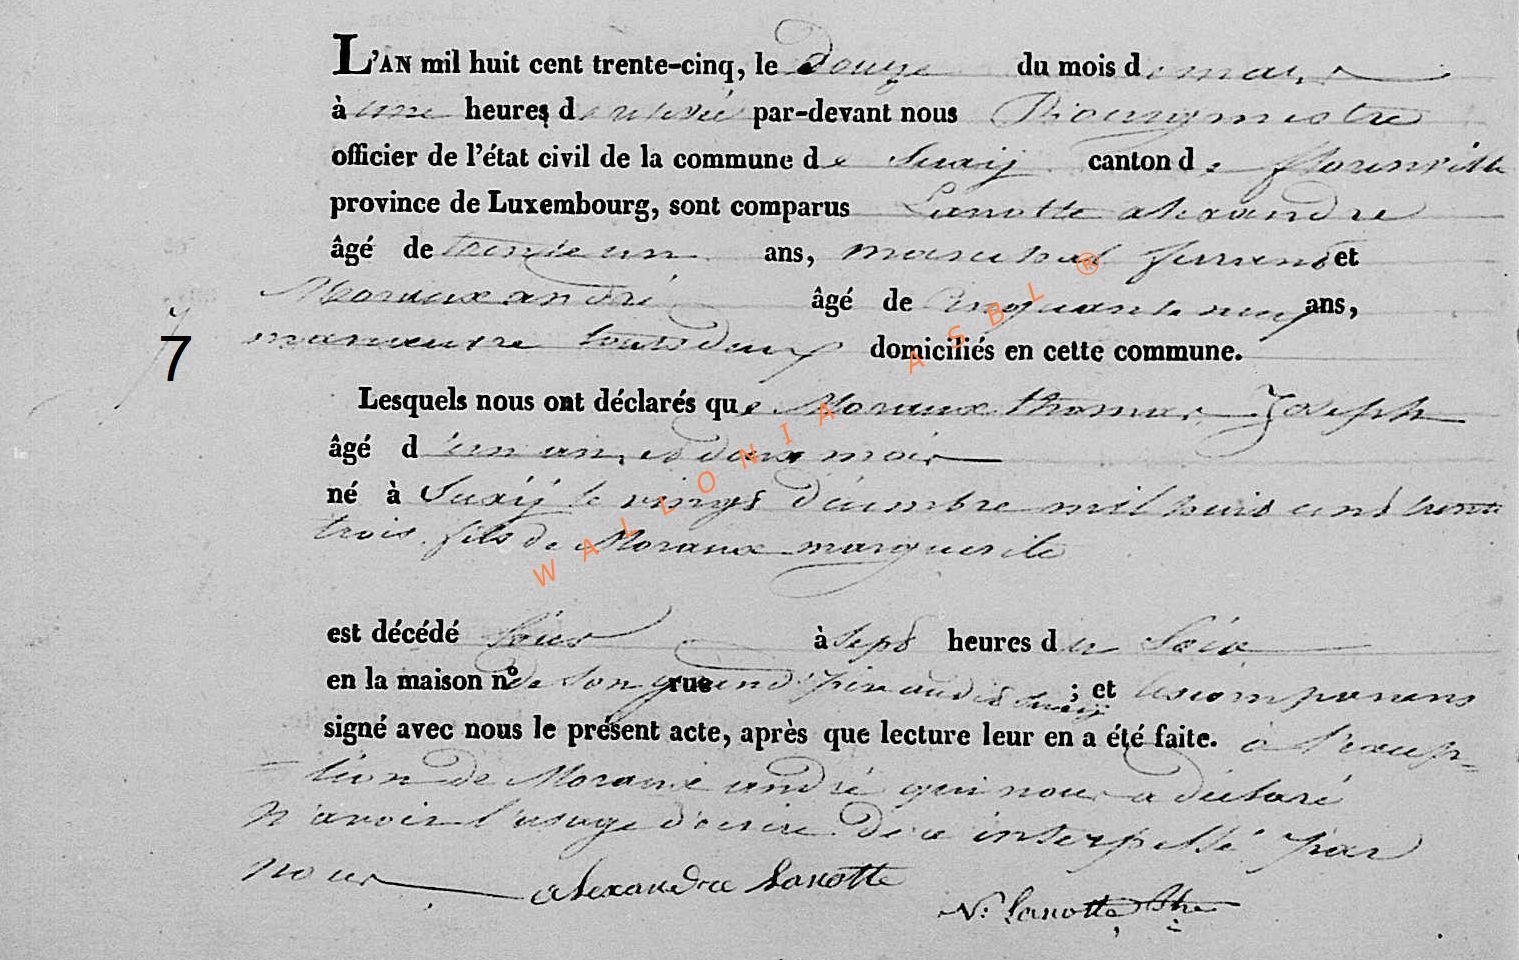 L'AN mil huit cent trente-cinq, le douze du mois de mars
à une heures de relevée par-devant nous Bourgmestre
officier de l'état civil de la commune de Suxÿ canton de florenville
province de Luxembourg, sont comparus Lanotte alexandre
âgé de trente un ans, marechal ferrand et
Moraux andré âgé de Cinquante neuf ans,
7 manœuvre touts deux domiciliés en cette commune.
Lesquels nous ont déclarés que Moraux thomas Joseph
âgé d'un an, et deux mois
né à Suxÿ le vingt décembre mil huit cent trente
trois. fils de Moraux marguerite
est décédé à sept heures du Soir
en la maison nº de son grand père rue ; et les comparans
signé avec nous le présent acte, après que lecture leur en a été faite. à l'excep=
=tion de Moraux andré qui nous a déclaré
n'avoir l'usage d'ecrire de ce interpellé par
nous alexandre Lanotte
N: Lanotte
WALLONIA ASBL ®